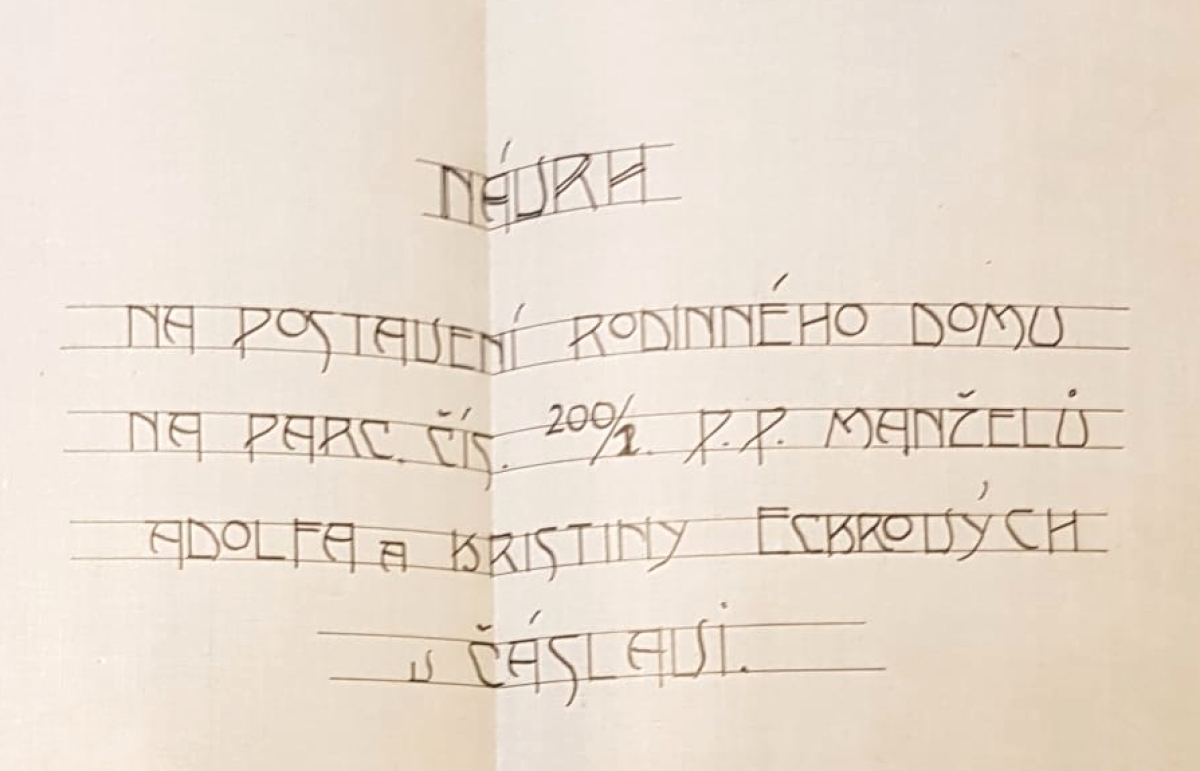 NÁVRH
NA POSTAVENÍ RODINNÉHO DOMU
NA PARC. ČÍS. 200/1. P.P. MANŽELŮ
ADOLFA A KRISTINY ECKROVÝCH
V ČÁSLAVI.